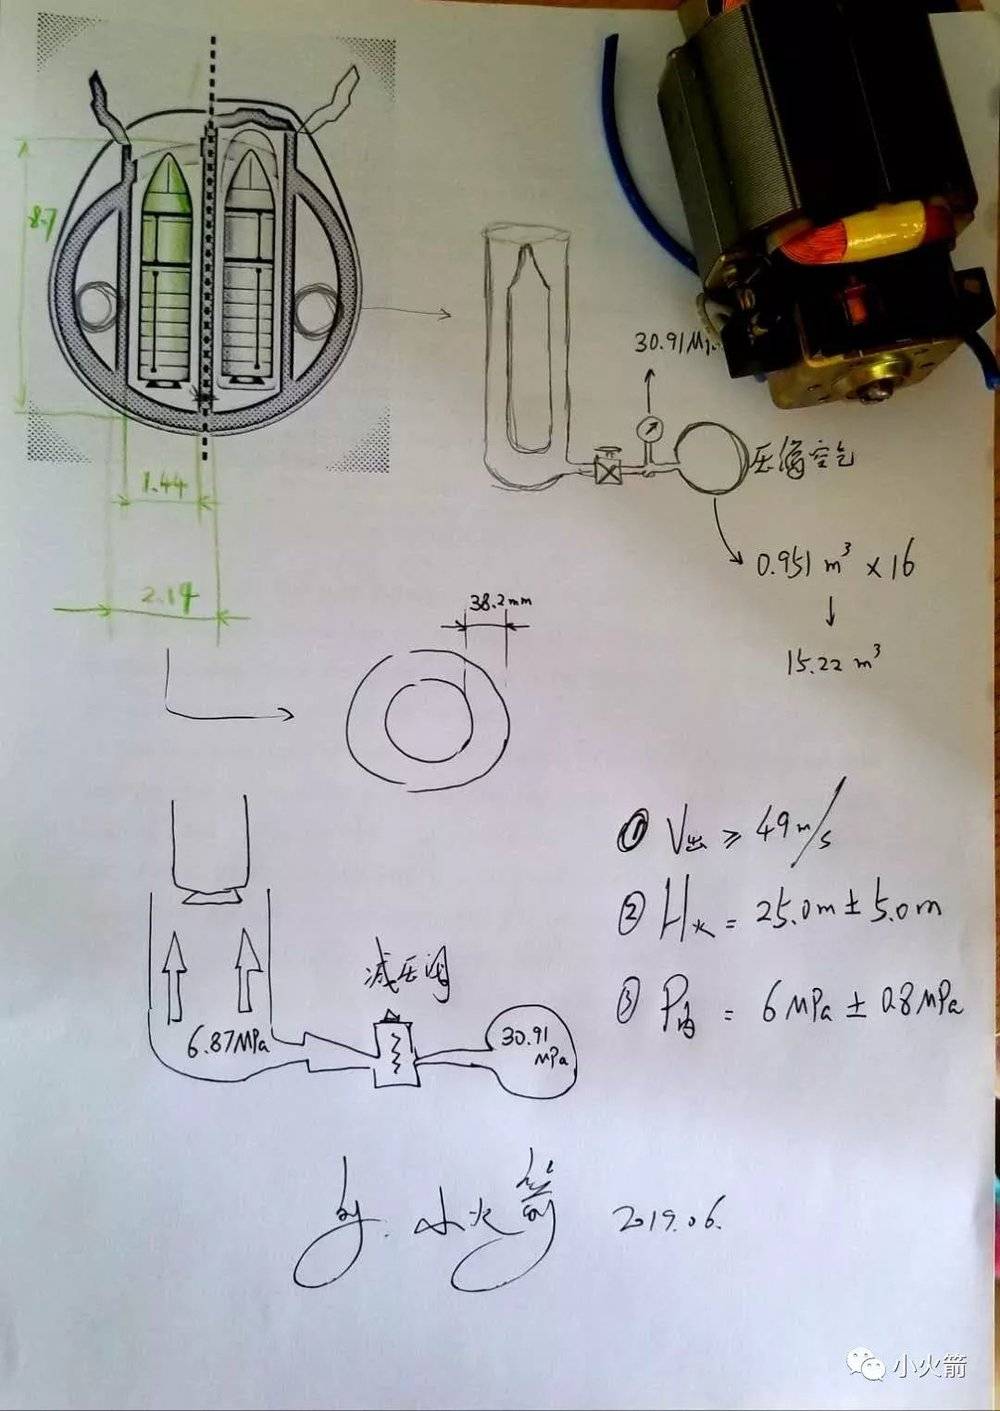 8.7
1.44
2.14
30.91M
压缩空气
0.951 m³ × 16
15.22 m³
38.2mm
① V出 ≥ 49m/s
② H火 = 25.0m ± 5.0m
③ P筒 = 6MPa ± 0.8MPa
减压阀
6.87MPa
30.91
MPa
by. 小火箭 2019.06.
小火箭